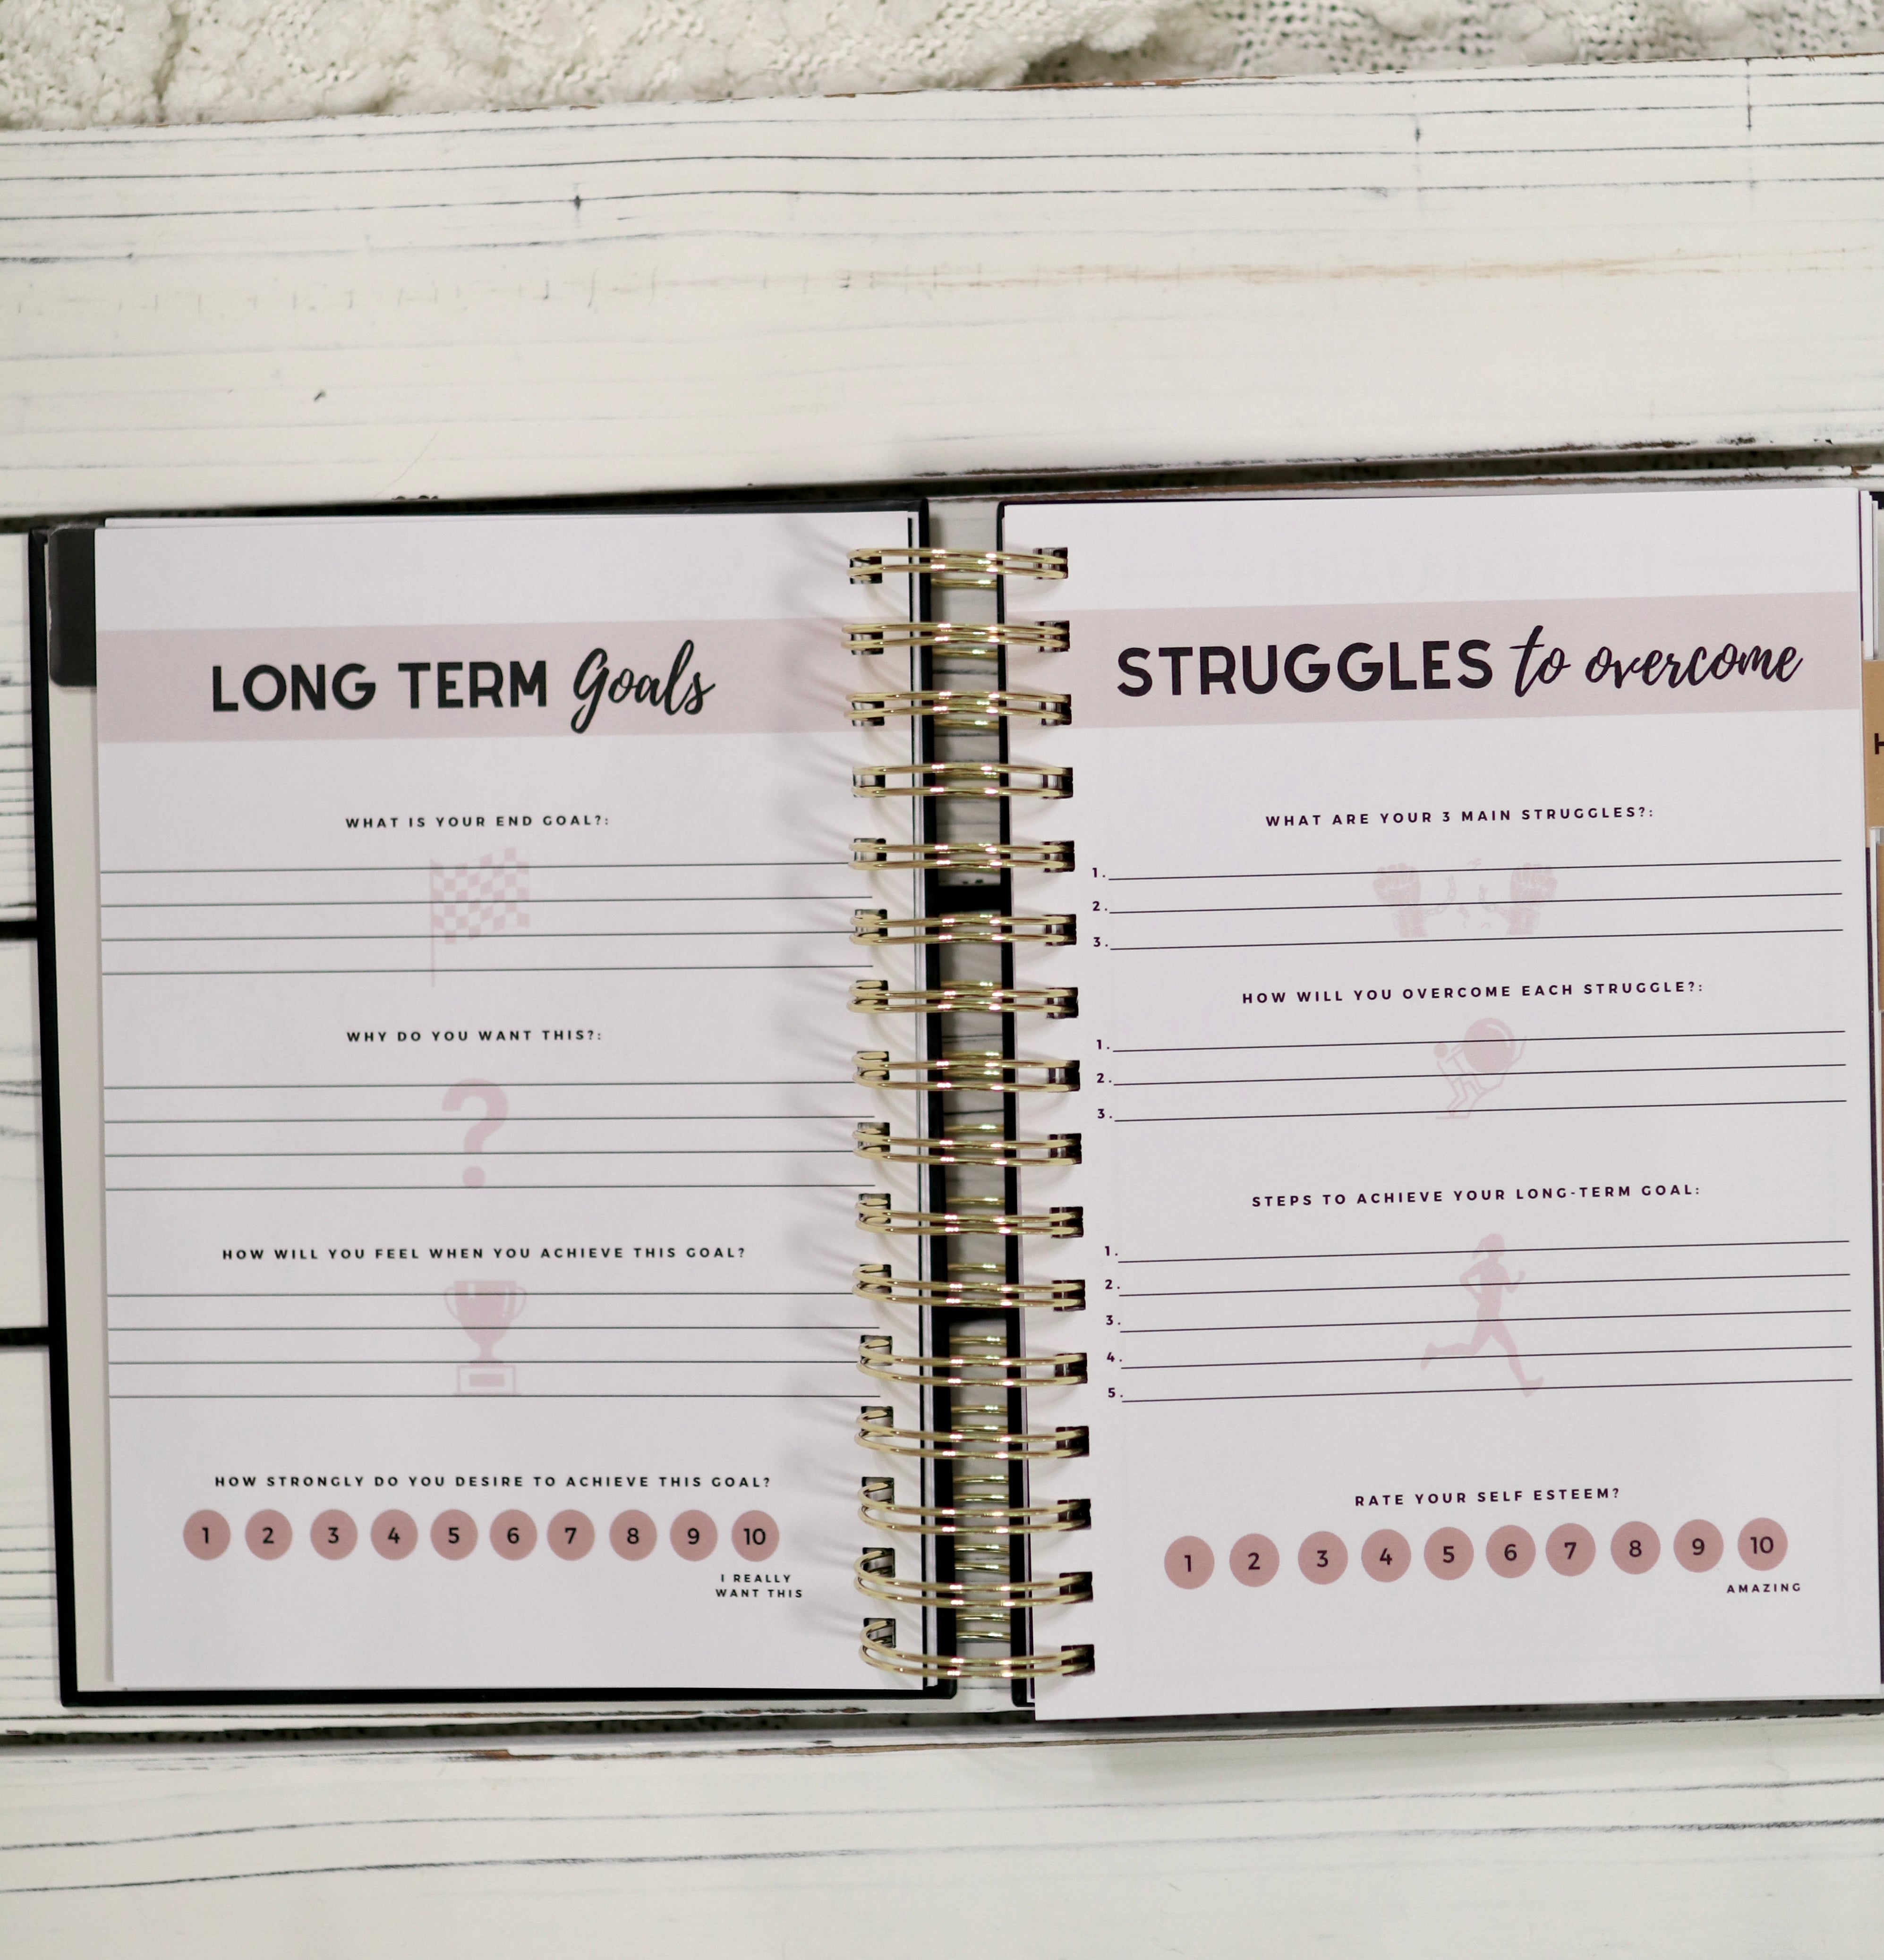 LONG TERM Goals
WHAT IS YOUR END GOAL?:
WHY DO YOU WANT THIS?:
HOW WILL YOU FEEL WHEN YOU ACHIEVE THIS GOAL?
HOW STRONGLY DO YOU DESIRE TO ACHIEVE THIS GOAL?
1 2 3 4 5 6 7 8 9 10
I REALLY
WANT THIS
STRUGGLES to overcome
WHAT ARE YOUR 3 MAIN STRUGGLES?:
1.
2.
3.
HOW WILL YOU OVERCOME EACH STRUGGLE?:
1.
2.
3.
STEPS TO ACHIEVE YOUR LONG-TERM GOAL:
1.
2.
3.
4.
5.
RATE YOUR SELF ESTEEM?
1 2 3 4 5 6 7 8 9 10
AMAZING